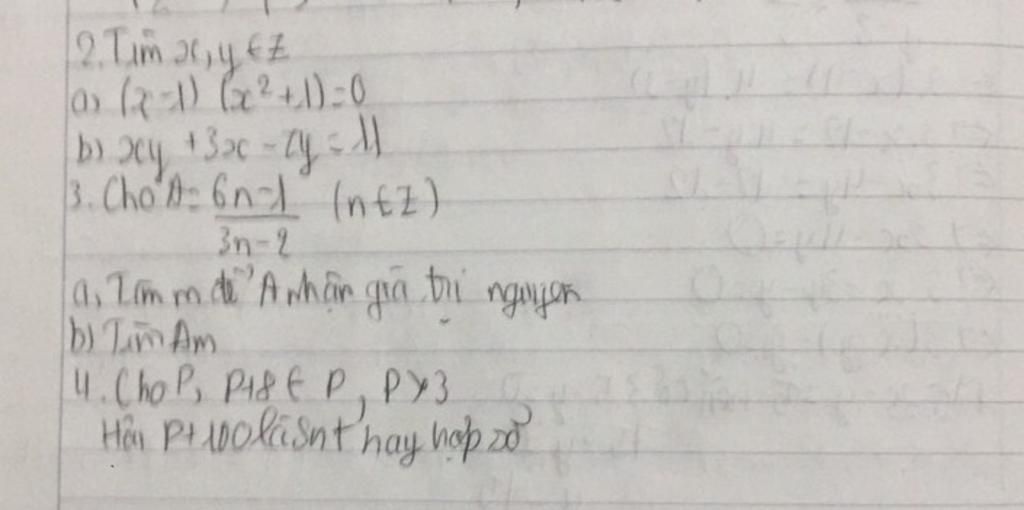 2. Tìm x, y ∈ Z
a) (x-1) (x²+1)=0
b) xy + 3x - 2y = 11
3. Cho A = 6n-1 / 3n-2 (n ∈ Z)
a, Tìm n để A nhận giá trị nguyên
b) Tìm Am
4. Cho P, P+8 ∈ P, P > 3
Hỏi P+100 là Snt hay hợp số